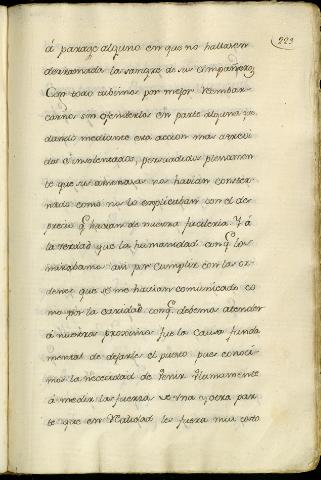 223
á parage alguno en que no hallasen
derramada la sangre de sus Compañeros
Con todo tubimos por mejor Reembar-
carnos sin ofenderlos en parte alguna que
dando mediante esta accion mas atrevi-
dos é insolentados, persuadidos plenamen
te que sus amenazas nos havian conster-
nado como nos lo explicaban con el des-
precio q.e hacian de nuestra fusileria. Y á
la verdad que la humanidad conq.e los
mirabamos asi por cumplir con las or-
denes que se me havian comunicado co
mo por la caridad conq.e debemos atender
á nuestros proximos fue la causa funda
mental de dejarles el puesto pues conoci-
mos la necesidad de Venir Ultimamente
á medir las fuerzas de una y otra par
te que en Realidad les fuera muy costo